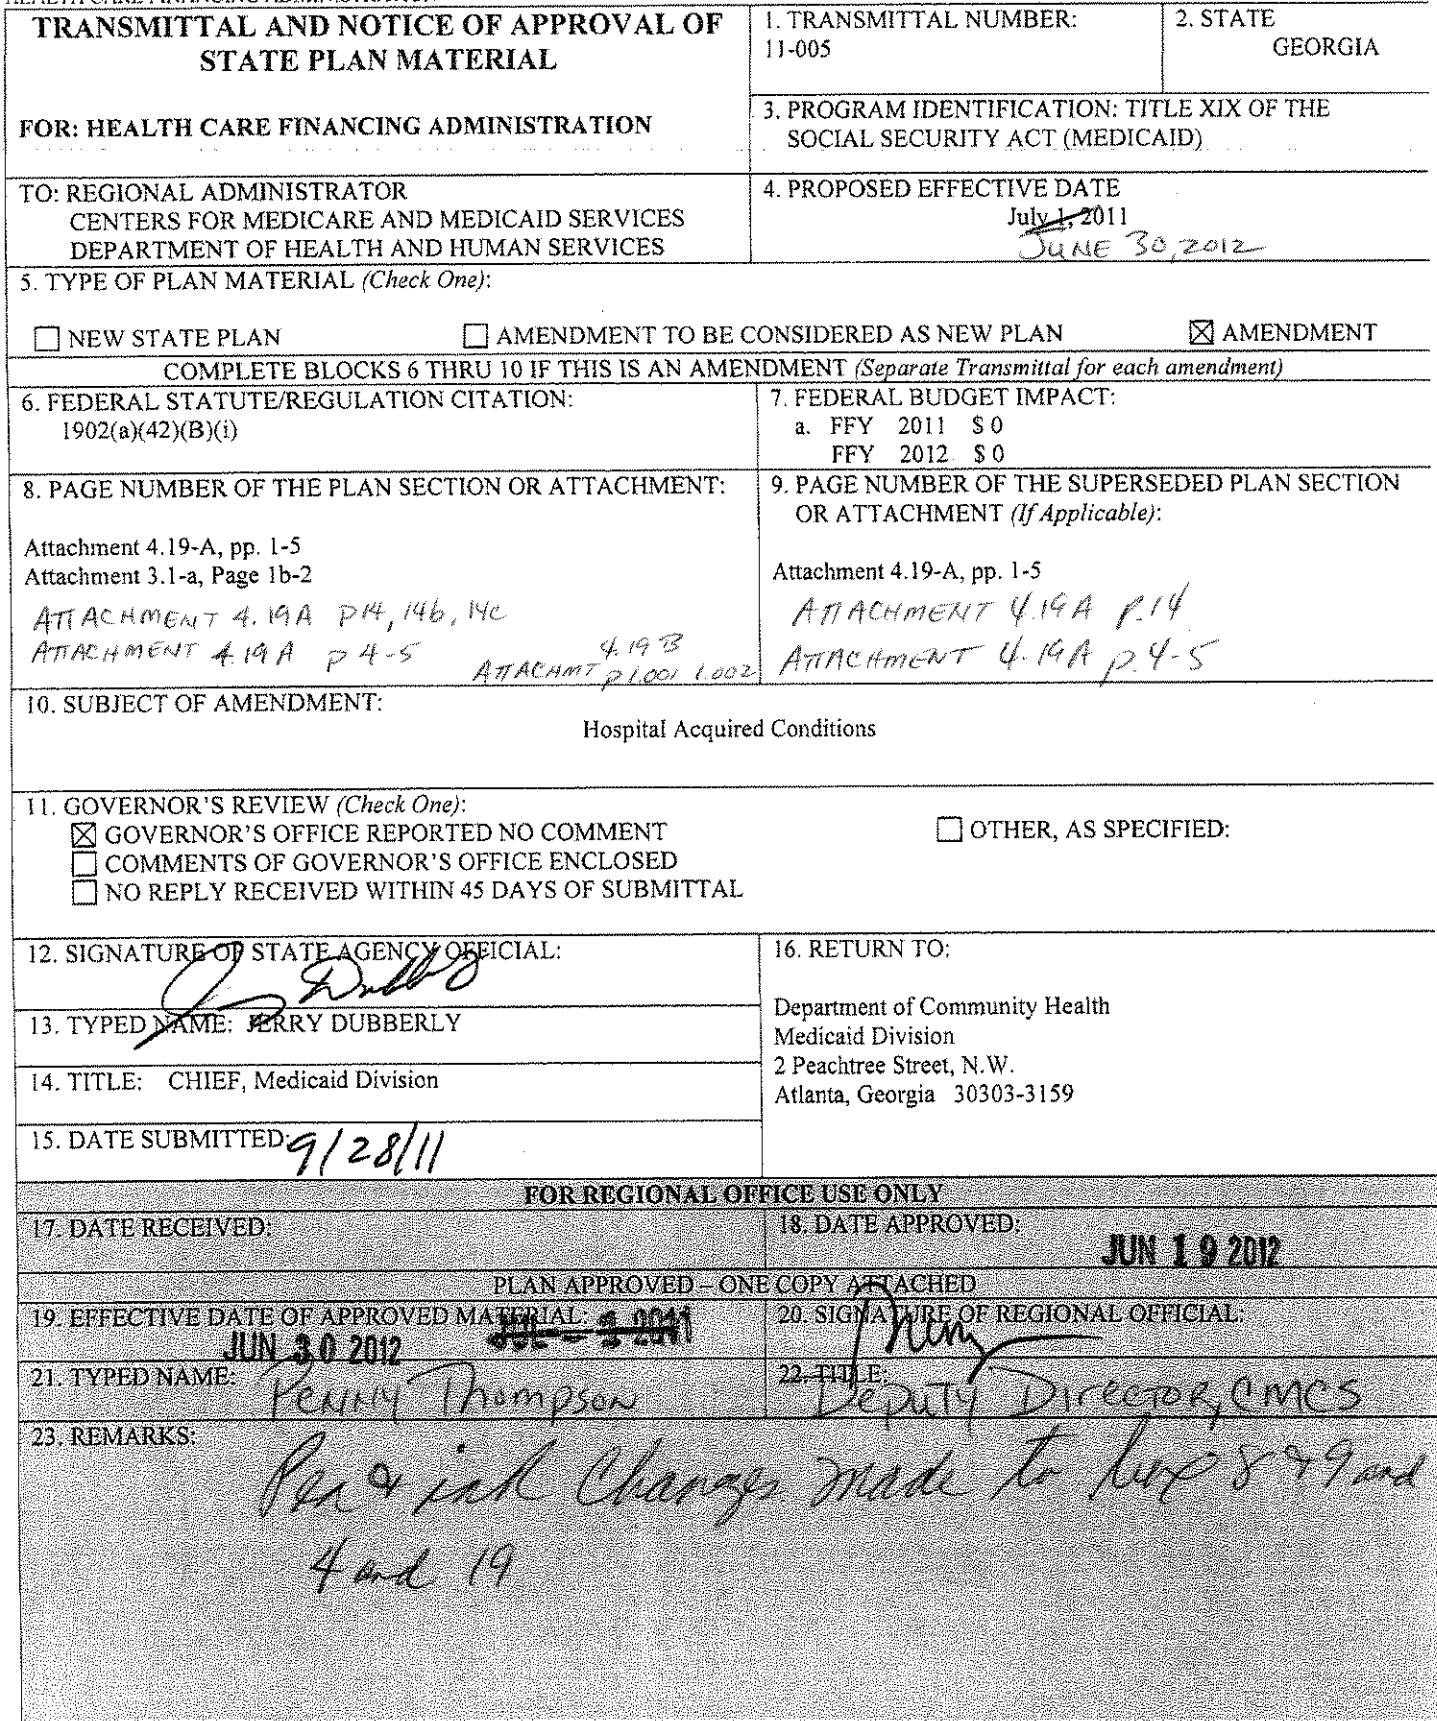 TRANSMITTAL AND NOTICE OF APPROVAL OF
STATE PLAN MATERIAL
FOR: HEALTH CARE FINANCING ADMINISTRATION
1. TRANSMITTAL NUMBER:
11-005
2. STATE
GEORGIA
3. PROGRAM IDENTIFICATION: TITLE XIX OF THE
SOCIAL SECURITY ACT (MEDICAID)
TO: REGIONAL ADMINISTRATOR
CENTERS FOR MEDICARE AND MEDICAID SERVICES
DEPARTMENT OF HEALTH AND HUMAN SERVICES
4. PROPOSED EFFECTIVE DATE
July 1, 2011
JUNE 30, 2012
5. TYPE OF PLAN MATERIAL (Check One):
☐ NEW STATE PLAN ☐ AMENDMENT TO BE CONSIDERED AS NEW PLAN ☒ AMENDMENT
COMPLETE BLOCKS 6 THRU 10 IF THIS IS AN AMENDMENT (Separate Transmittal for each amendment)
6. FEDERAL STATUTE/REGULATION CITATION:
1902(a)(42)(B)(i)
7. FEDERAL BUDGET IMPACT:
a. FFY 2011 $ 0
FFY 2012 $ 0
8. PAGE NUMBER OF THE PLAN SECTION OR ATTACHMENT:
Attachment 4.19-A, pp. 1-5
Attachment 3.1-a, Page 1b-2
ATTACHMENT 4.19A P14, 14b, 14c
ATTACHMENT 4.19A P 4-5
4.19 B
ATTACHMT p 1.001 1.002
9. PAGE NUMBER OF THE SUPERSEDED PLAN SECTION
OR ATTACHMENT (If Applicable):
Attachment 4.19-A, pp. 1-5
ATTACHMENT 4.19A P.14
ATTACHMENT 4.19A p.4-5
10. SUBJECT OF AMENDMENT:
Hospital Acquired Conditions
11. GOVERNOR'S REVIEW (Check One):
☒ GOVERNOR'S OFFICE REPORTED NO COMMENT
☐ COMMENTS OF GOVERNOR'S OFFICE ENCLOSED
☐ NO REPLY RECEIVED WITHIN 45 DAYS OF SUBMITTAL
☐ OTHER, AS SPECIFIED:
12. SIGNATURE OF STATE AGENCY OFFICIAL:
13. TYPED NAME: JERRY DUBBERLY
14. TITLE: CHIEF, Medicaid Division
15. DATE SUBMITTED: 9/28/11
16. RETURN TO:
Department of Community Health
Medicaid Division
2 Peachtree Street, N.W.
Atlanta, Georgia 30303-3159
FOR REGIONAL OFFICE USE ONLY
17. DATE RECEIVED:
18. DATE APPROVED:
JUN 19 2012
PLAN APPROVED – ONE COPY ATTACHED
19. EFFECTIVE DATE OF APPROVED MATERIAL:
JUN 30 2012
20. SIGNATURE OF REGIONAL OFFICIAL:
21. TYPED NAME: Penny Thompson
22. TITLE: Deputy Director, CMCS
23. REMARKS:
Pen & ink Changes made to box 8 & 9 and
4 and 19